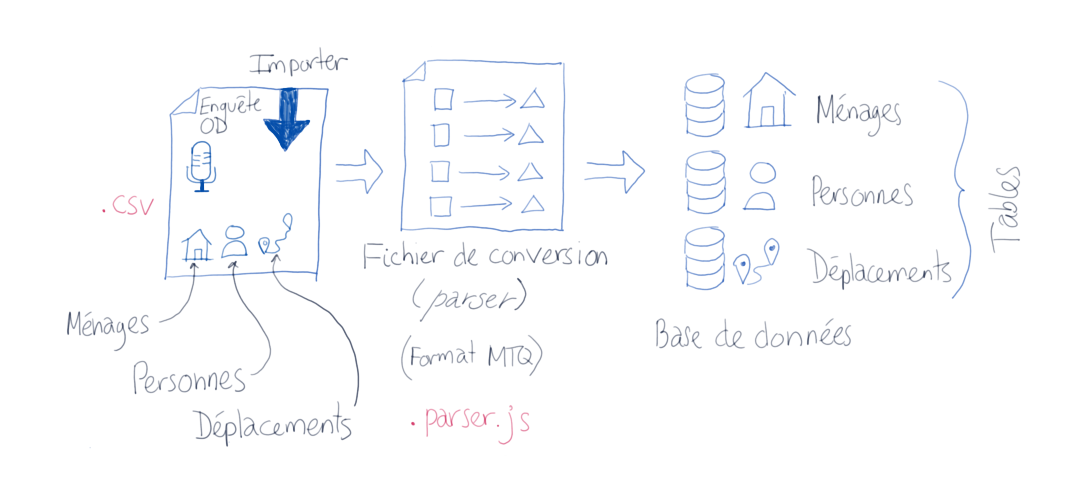 Importer
Enquête
OD
.csv
Ménages
Personnes
Déplacements
Fichier de conversion
(parser)
(Format MTQ)
.parser.js
Ménages
Personnes
Déplacements
Base de données
Tables